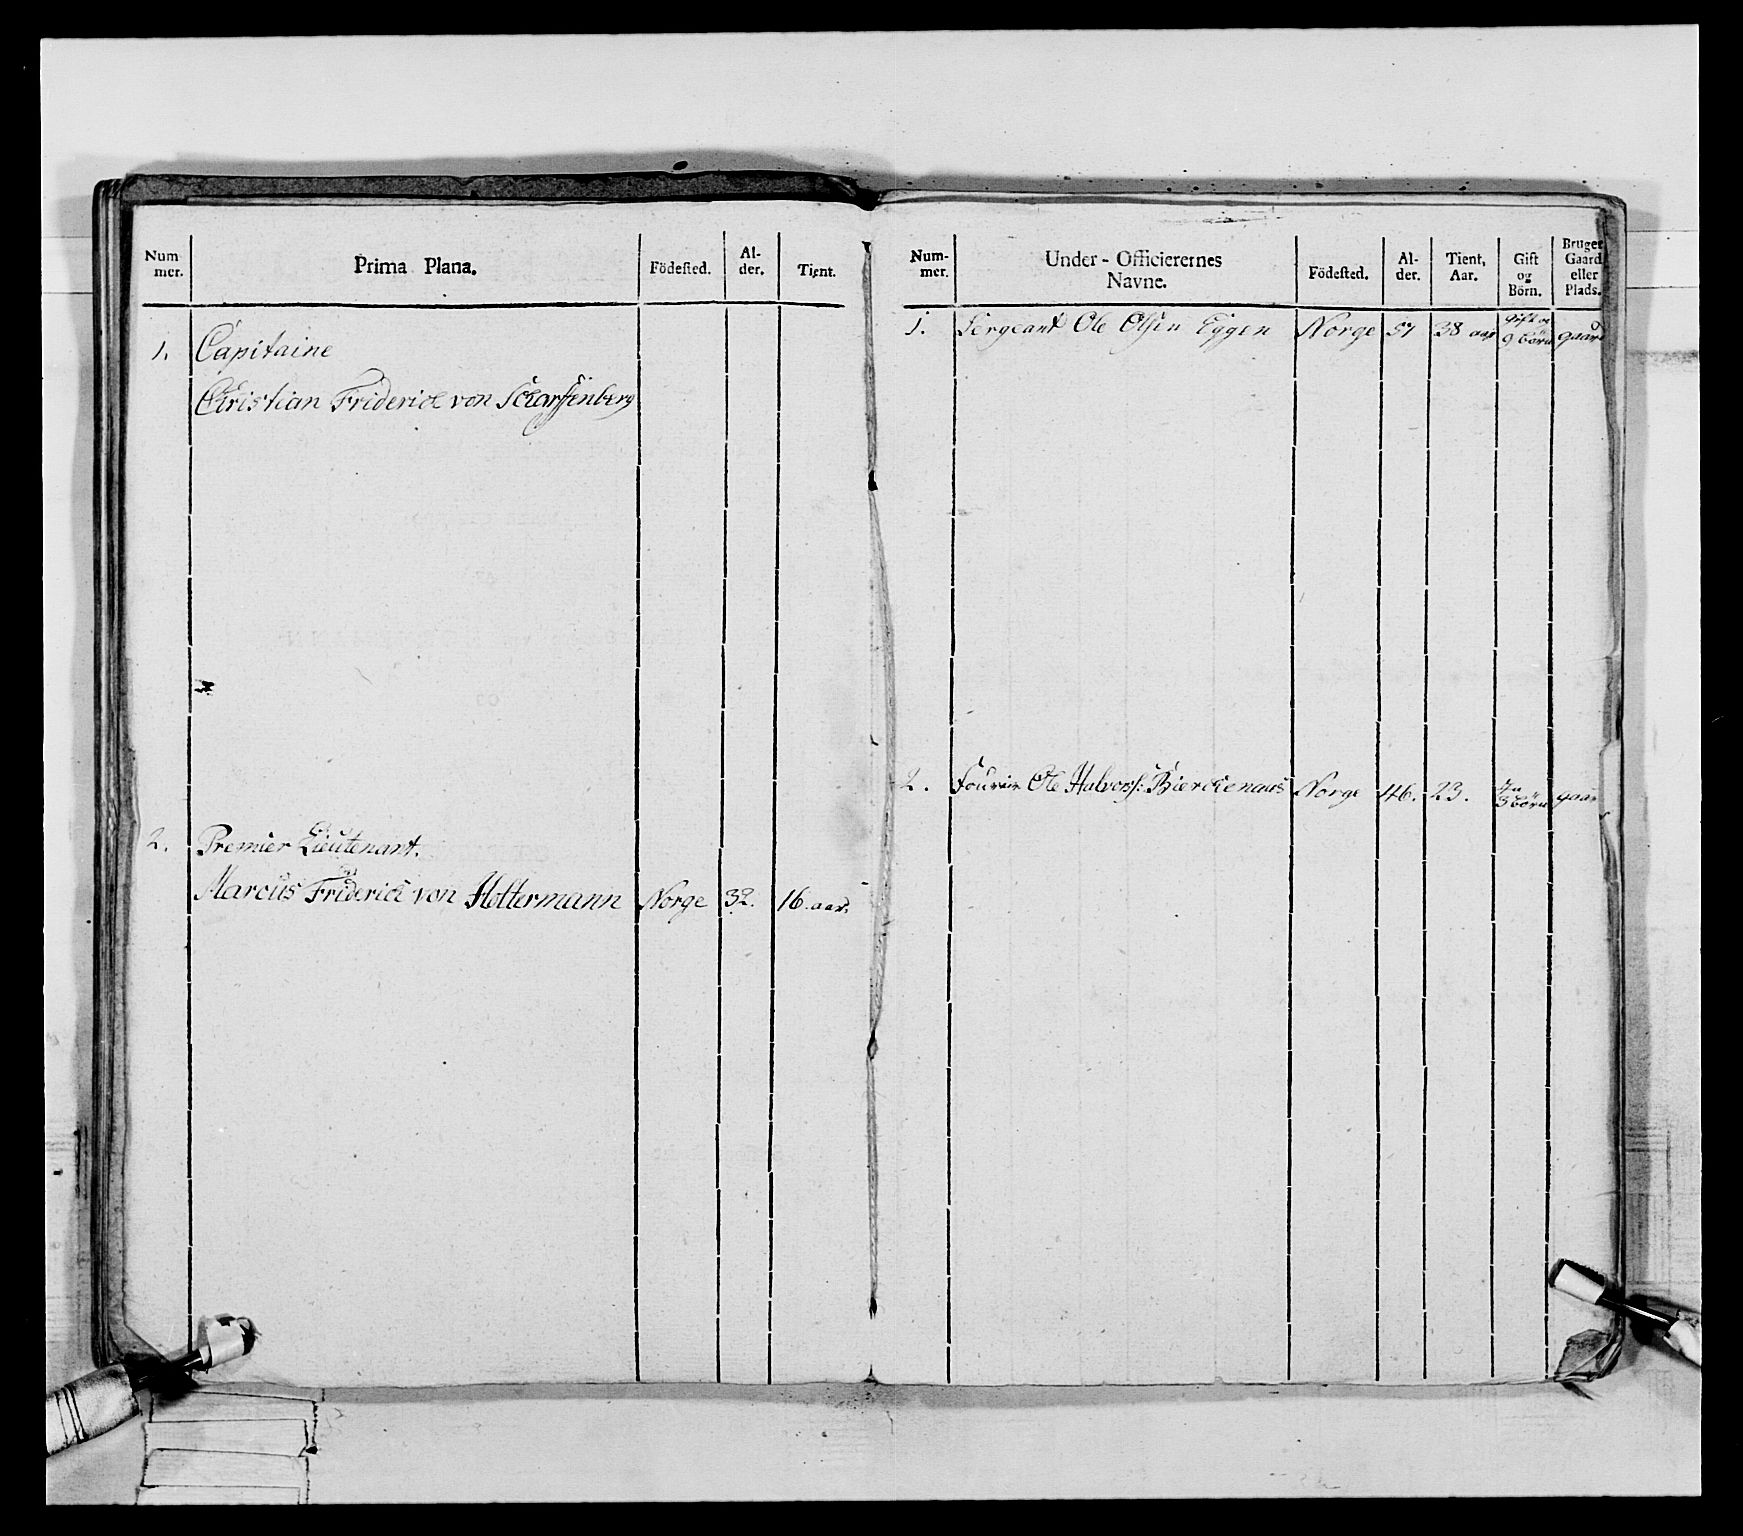 Num-
mer.
Prima Plana.
Födested.
Al-
der.
Tient.
1. Capitaine
Christian Friderich von Scharffenberg
2. Premier Lieutenant.
Marcus Friderich von Holtermann Norge 32. 16. aar.
Num-
mer.
Under-Officierernes
Navne.
Födested.
Al-
der.
Tient,
Aar.
Gift
og
Börn.
Bruger
Gaard
eller
Plads.
1. Sergeant Ole Olsen Eggen Norge 57 38 aar Gift og
9 börn gaard
2. Ole Halvors: Norge 46. 23.
3 börn gaar